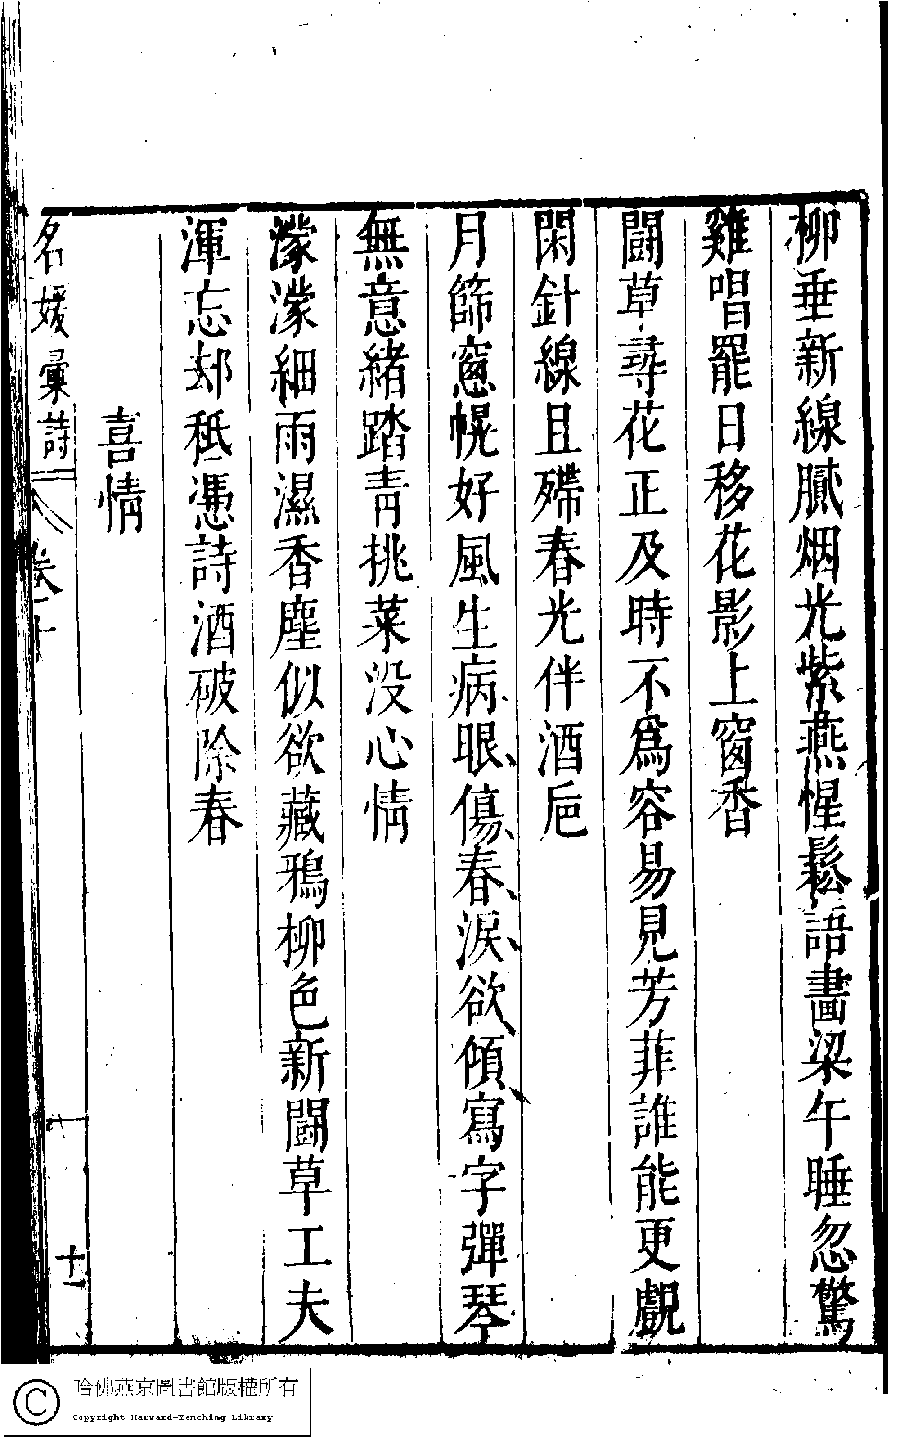 柳垂新線膩烟光紫燕惺鬆語畫梁午睡忽驚
雞唱罷日移花影上窗香
鬭草尋花正及時不爲容易見芳菲誰能更覷
閑針線且殢春光伴酒巵
月篩窻幌好風生病眼傷春淚欲傾寫字彈琴
無意緒踏青挑菜没心情
濛濛細雨濕香塵似欲藏鴉柳色新鬭草工夫
渾忘却秪憑詩酒破除春
喜情
名媛彙詩
卷十
十一
哈佛燕京圖書館版權所有
Copyright Harvard-Yenching Library